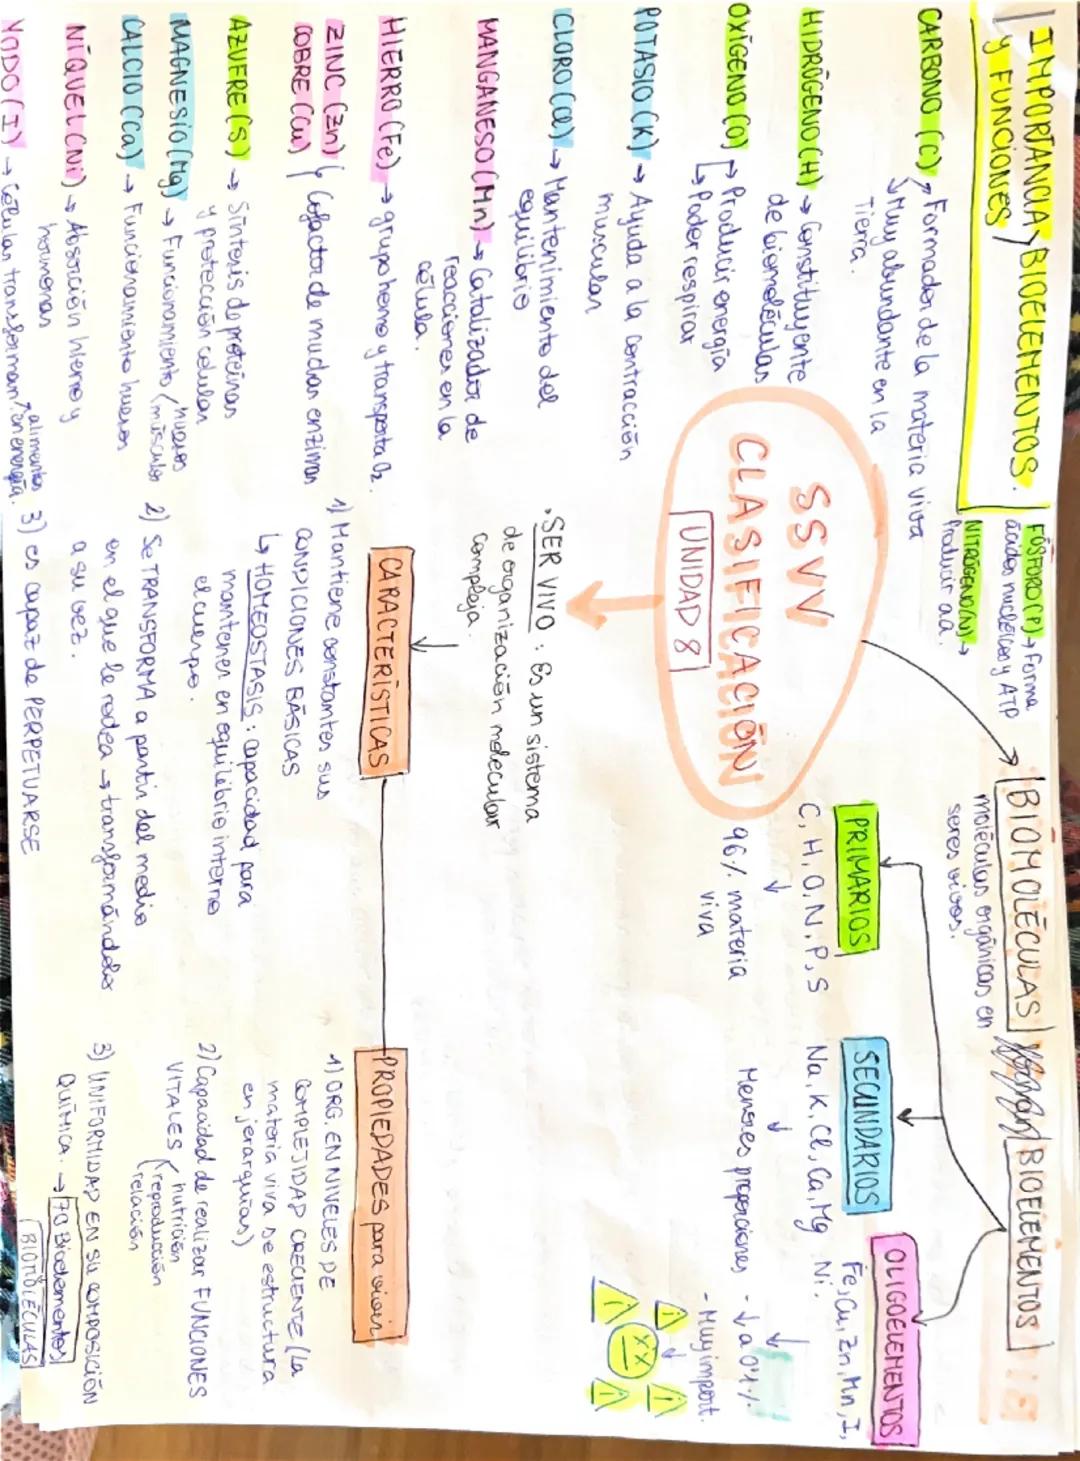 IMPORTANCIA BIOELEMENTOS.
y FUNCIONES
CARBONO (C) → Formador de la materia viva
↳ Muy abundante en la
Tierra.
HIDRÓGENO (H) → Constituyente
de biomoléculas
OXÍGENO (O) → Producir energía
↳ Poder respirar
POTASIO (K) → Ayuda a la contracción
muscular
CLORO (Cl) → Mantenimiento del
equilibrio
MANGANESO (Mn) → Catalizador de
reacciones en la
célula.
HIERRO (Fe) → grupo hemo y transporta O2.
ZINC (Zn)
COBRE (Cu)
Cofactor de muchas enzimas
AZUFRE (S) → Síntesis de proteínas
y protección celular
MAGNESIO (Mg) → Funcionamiento (músculos
huesos
CALCIO (Ca) → Funcionamiento huesos
NÍQUEL (Ni) → Absorción hierro y
hormonas
YODO (I) → Células transforman alimentos
en energía.
FÓSFORO (P) → Forma
ácidos nucléicos y ATP
NITRÓGENO (N) →
Producir aa.
SSVV
CLASIFICACIÓN
UNIDAD 8
• SER VIVO: Es un sistema
de organización molecular
compleja.
CARACTERÍSTICAS
1) Mantiene constantes sus
CONDICIONES BÁSICAS
↳ HOMEOSTASIS: capacidad para
mantener en equilibrio interno
el cuerpo.
2) Se TRANSFORMA a partir del medio
en el que le rodea → transformándolo
a su vez.
3) es capaz de PERPETUARSE
BIOMOLÉCULAS
moléculas orgánicas en
seres vivos.
BIOELEMENTOS
PRIMARIOS
C, H, O, N, P, S
↓
96% materia
viva
SECUNDARIOS
Na, K, Cl, Ca, Mg
↓
Menores proporciones
OLIGOELEMENTOS
Fe, Cu, Zn, Mn, I,
Ni.
↓
- ↓ a 0'1%
- Muy import.
PROPIEDADES para vivir
1) ORG. EN NIVELES DE
COMPLEJIDAD CRECIENTE (la
materia viva se estructura
en jerarquías)
2) Capacidad de realizar FUNCIONES
VITALES
nutrición
reproducción
relación
3) UNIFORMIDAD EN SU COMPOSICIÓN
QUÍMICA. → 70 Bioelementos
BIOMOLÉCULAS